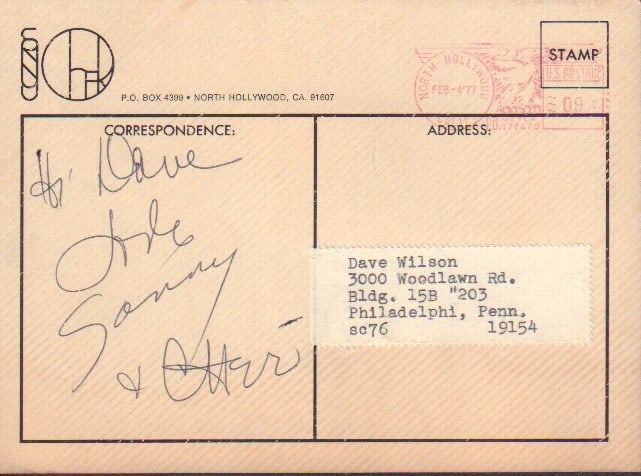 P.O. BOX 4399 • NORTH HOLLYWOOD, CA. 91607
STAMP
NORTH HOLLYWOOD
FEB-4'77
U.S. POSTAGE
CORRESPONDENCE:
Hi Dave
Love
Sonny
& Cher
ADDRESS:
Dave Wilson
3000 Woodlawn Rd.
Bldg. 15B "203
Philadelphi, Penn.
sc76 19154